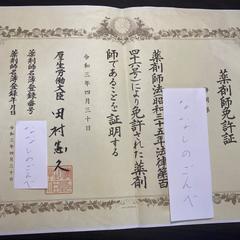 薬剤師免許証
ななしのごんべ
薬剤師法(昭和三十五年法律第百
四十六号)により免許された薬剤
師であることを証明する
令和三年四月三十日
厚生労働大臣 田村憲久
薬剤師名簿登録番号
薬剤師名簿登録年月日
令和三年四月三十日
ななしのごんべ